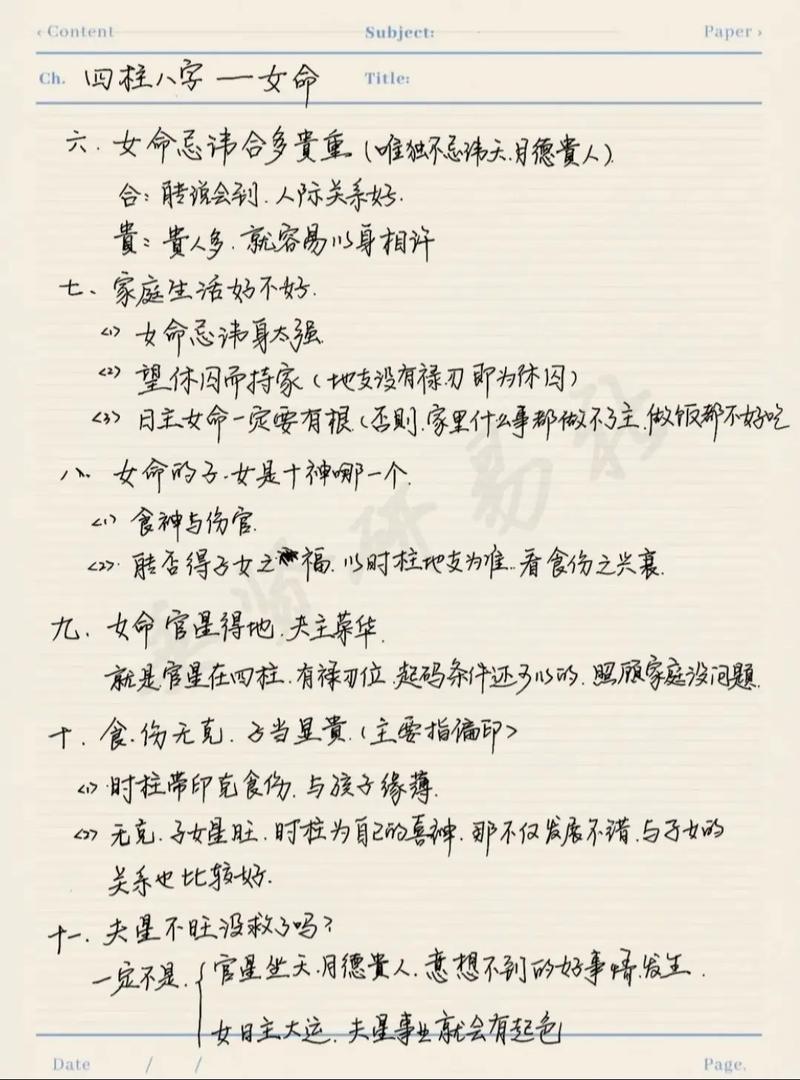 ‹ Content Subject: Paper ›
Ch. 四柱八字 — 女命 Title:
六、女命忌讳合多貴重(唯独不忌讳天.月德貴人).
合:能说会到.人际关系好.
貴:貴人多.就容易以身相许
七、家庭生活好不好.
<1> 女命忌讳身太强.
<2> 望休囚而持家(地支没有禄.刃即为休囚)
<3> 日主女命一定要有根.(否则.家里什么事都做不了主.做饭都不好吃
八、女命的子.女是十神哪一个.
<1> 食神与伤官.
<2> 能否得子女之福.以时柱地支为准..看食伤之兴衰.
九、女命官星得地.夫主荣华.
就是官星在四柱.有禄刃位.起码条件还可以的.照顾家庭没问题.
十、食.伤无克.子当显貴.(主要指偏印>
<1> 时柱带印克食伤.与孩子缘薄.
<2> 无克.子女星旺.时柱为自己的喜神.那不仅发展不错.与子女的
关系也比较好.
十一、夫星不旺没救了吗?
一定不是.{官星坐天.月德貴人.意想不到的好事情.发生.
女日主大运.夫星事业就会有起色
Date / / Page.
研易社